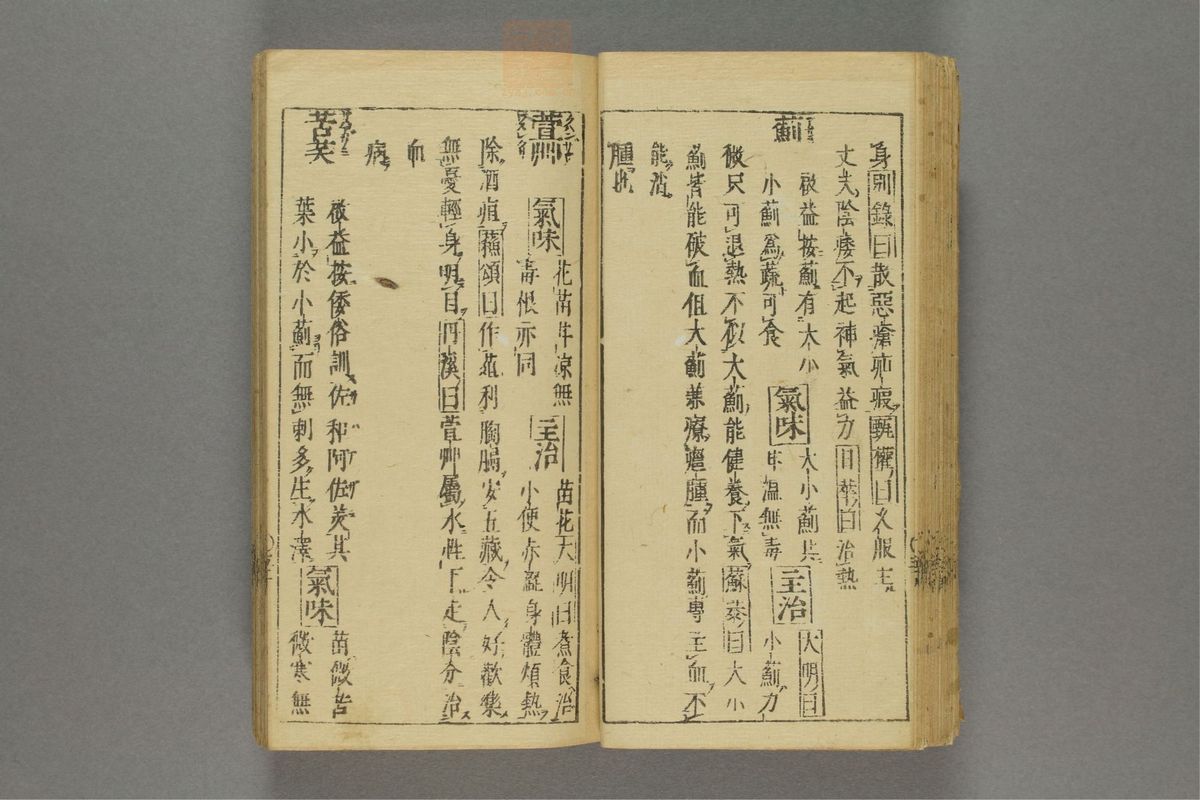 身別錄曰散惡瘡疥瘕甄權曰久服主
丈夫陰痿不起補氣益力日華曰治熱
薊
啟益按薊有大小
小薊為蔬可食
氣味
大小薊共
甘溫無毒
主治
大明曰
小薊力
微只可退熱不似大薊能健養下氣蘇恭曰大小
薊皆能破血但大薊兼療癰腫而小薊專主血不
能消
腫也
萱艸
氣味
花苗甘凉無
毒根亦同
主治
苗花大明曰煮食治
小便赤澁身體煩熱
除酒疸蘇頌曰作葅利胸膈安五藏令人好歡樂
無憂輕身明目丹溪曰萱艸屬木性下走陰分治
血
病
苦芺
啟益按倭俗訓佐和阿佐美其
葉小於小薊而無刺多生水澤
氣味
苗微苦
微寒無